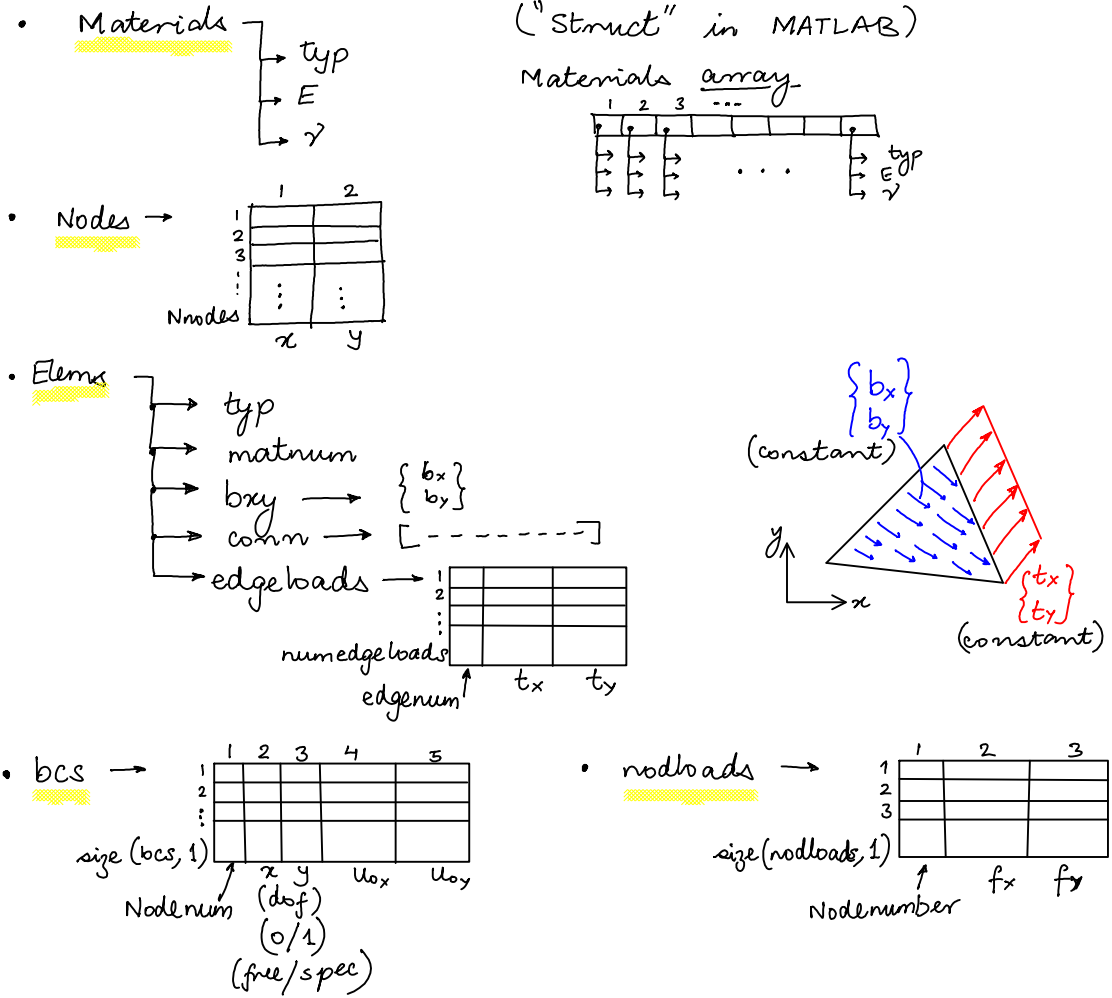 • Materials
typ
E
ν
("Struct" in MATLAB)
Materials array
1 2 3 ...
. . .
typ
E
ν
• Nodes →
1 2
1
2
3
⋮
Nnodes
x y
• Elems
typ
matnum
bxy → { bx by }
conn → [ - - - - - - - - ]
edgeloads →
1
2
⋮
numedgeloads
edgenum
tx ty
{ bx by }
(constant)
y
x
{ tx ty }
(constant)
• bcs →
1 2 3 4 5
1
2
⋮
size (bcs, 1)
Nodenum
x y uox uoy
(dof)
(0/1)
(free/spec)
• nodloads →
1 2 3
1
2
3
size (nodloads, 1)
Nodenumber
fx fy